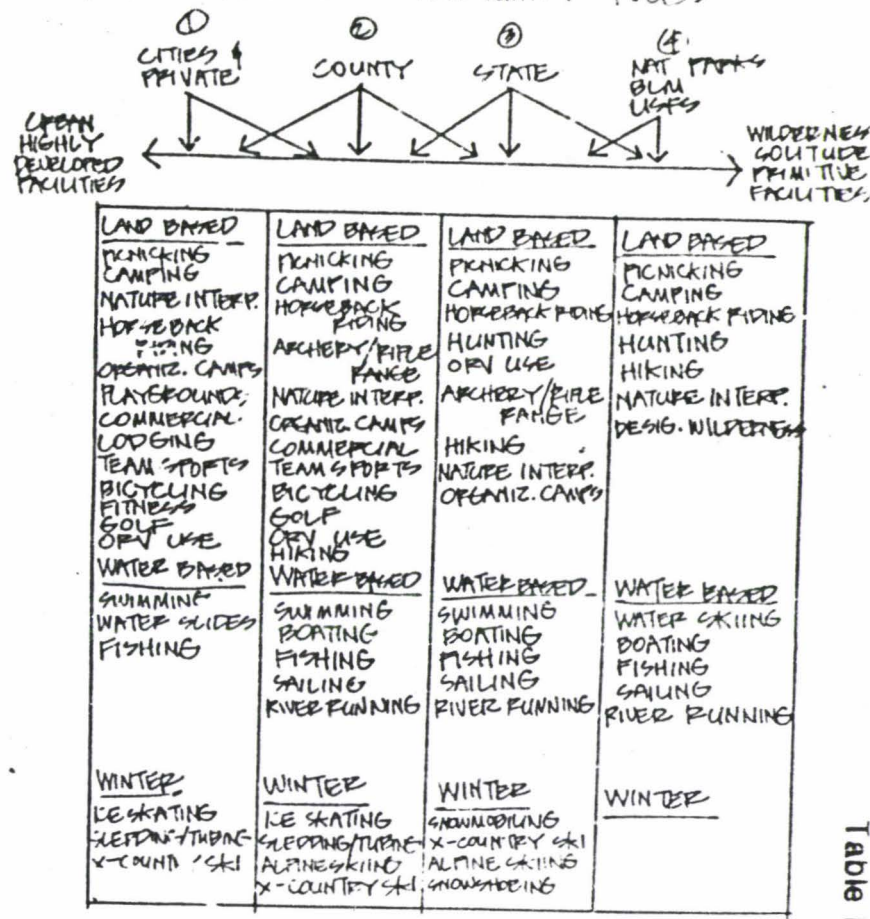 ①
CITIES &
PRIVATE
②
COUNTY
③
STATE
④
NAT PARKS
BLM
USFS
URBAN
HIGHLY
DEVELOPED
FACILITIES
WILDERNESS
SOLITUDE
PRIMITIVE
FACILITIES
LAND BASED
PICNICKING
CAMPING
NATURE INTERP.
HORSEBACK
RIDING
ORGANIZ. CAMPS
PLAYGROUNDS,
COMMERCIAL.
LODGING
TEAM SPORTS
BICYCLING
FITNESS
GOLF
ORV USE
WATER BASED
SWIMMING
WATER SLIDES
FISHING
WINTER
ICE SKATING
SLEDDING/TUBING
X-COUNTRY SKI
LAND BASED
PICNICKING
CAMPING
HORSEBACK
RIDING
ARCHERY/RIFLE
RANGE
NATURE INTERP.
ORGANIZ. CAMPS
COMMERCIAL
TEAM SPORTS
BICYCLING
GOLF
ORV USE
HIKING
WATER BASED
SWIMMING
BOATING
FISHING
SAILING
RIVER RUNNING
WINTER
ICE SKATING
SLEDDING/TUBING
ALPINE SKIING
X-COUNTRY SKI
LAND BASED
PICNICKING
CAMPING
HORSEBACK RIDING
HUNTING
ORV USE
ARCHERY/RIFLE
RANGE
HIKING
NATURE INTERP.
ORGANIZ. CAMPS
WATER BASED
SWIMMING
BOATING
FISHING
SAILING
RIVER RUNNING
WINTER
SNOWMOBILING
X-COUNTRY SKI
ALPINE SKIING
SNOWSHOEING
LAND BASED
PICNICKING
CAMPING
HORSEBACK RIDING
HUNTING
HIKING
NATURE INTERP.
DESIG. WILDERNESS
WATER BASED
WATER SKIING
BOATING
FISHING
SAILING
RIVER RUNNING
WINTER
Table